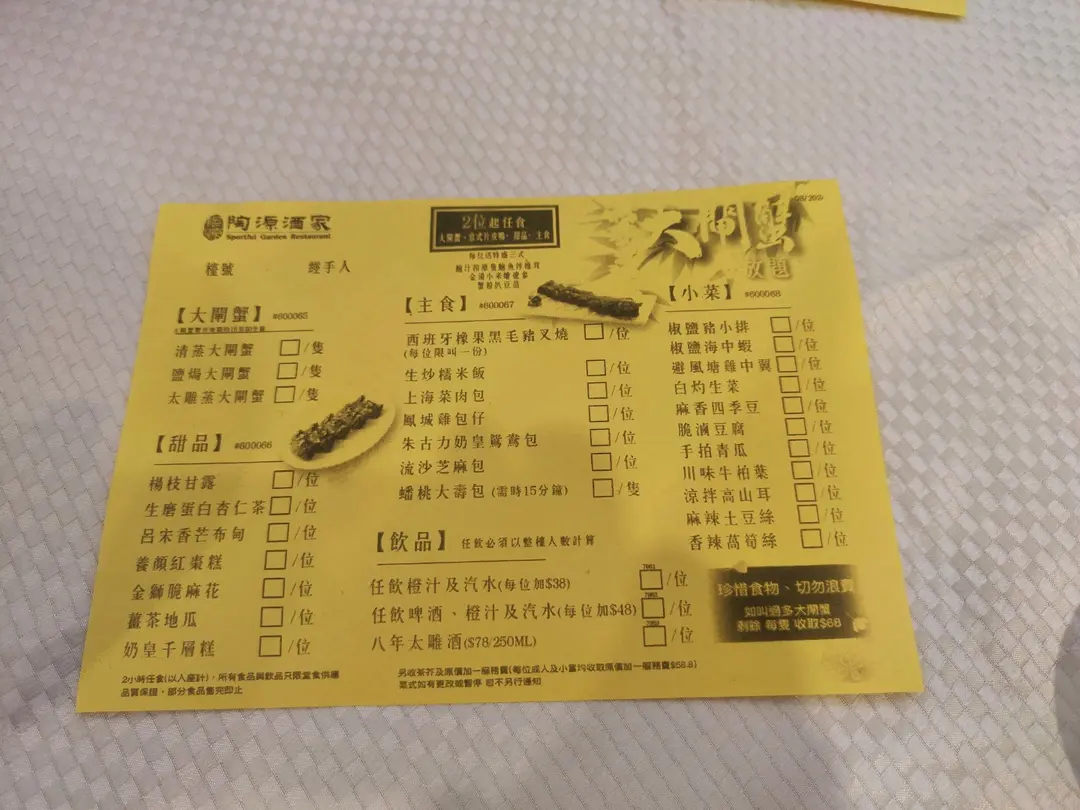 陶源酒家
Sportful Garden Restaurant
檯號 經手人
2位起任食
大閘蟹、京式片皮鴨、甜品、主食
每位送特盛三式
蟹粉扒豆苗
大閘蟹
放題
【大閘蟹】 #600065
清蒸大閘蟹 □/隻
鹽焗大閘蟹 □/隻
太雕蒸大閘蟹 □/隻
【甜品】 #600066
楊枝甘露 □/位
生磨蛋白杏仁茶 □/位
呂宋香芒布甸 □/位
養顏紅棗糕 □/位
金獅脆麻花 □/位
薑茶地瓜 □/位
奶皇千層糕 □/位
2小時任食(以入座計)，所有食品與飲品只限堂食供應
品質保證，部分食品售完即止
【主食】 #600067
西班牙橡果黑毛豬叉燒 □/位
(每位限叫一份)
生炒糯米飯 □/位
上海菜肉包 □/位
鳳城雞包仔 □/位
朱古力奶皇鴛鴦包 □/位
流沙芝麻包 □/位
蟠桃大壽包 (需時15分鐘) □/隻
【飲品】 任飲必須以整檯人數計算
任飲橙汁及汽水(每位加$38) □/位
任飲啤酒、橙汁及汽水(每位加$48) □/位
八年太雕酒($78/250ML) □/位
另收茶芥及原價加一服務費(每位成人及小童均收取原價加一服務費$58.8)
菜式如有更改或暫停 恕不另行通知
【小菜】 #600068
椒鹽豬小排 □/位
椒鹽海中蝦 □/位
避風塘雞中翼 □/位
白灼生菜 □/位
麻香四季豆 □/位
脆滷豆腐 □/位
手拍青瓜 □/位
川味牛柏葉 □/位
涼拌高山耳 □/位
麻辣土豆絲 □/位
香辣萵筍絲 □/位
珍惜食物、切勿浪費
如叫過多大閘蟹
剩餘 每隻 收取$68